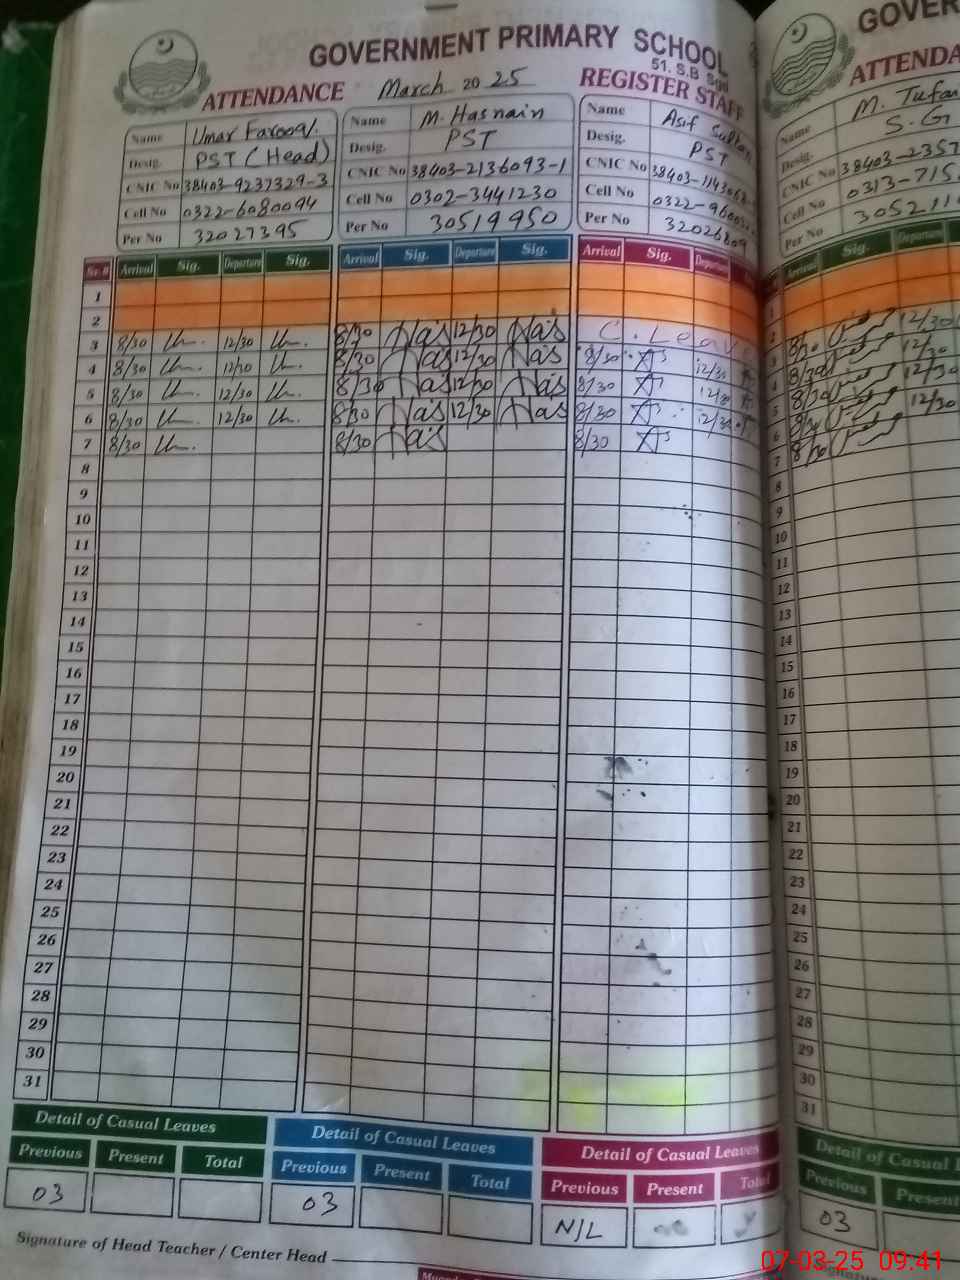 GOVERNMENT PRIMARY SCHOOL
51. S.B Sgd
ATTENDANCE March 2025 REGISTER STAFF
Name Umar Farooq.
Desig. PST (Head)
CNIC No 38403-9237329-3
Cell No 0322-6080094
Per No 32027395
Name M. Hasnain
Desig. PST
CNIC No 38403-2136093-1
Cell No 0302-3441230
Per No 30519950
Name Asif Sultan
Desig. PST
CNIC No
Cell No
Per No 32026809
GOVER
ATTENDA
Name M. Tufa
Desig. S.G
CNIC No 38403-2357
Cell No 0313-715
Per No 305211
Arrival Sig. Departure Sig. Arrival Sig. Departure Sig. Arrival Sig. Departure Arrival Sig. Departure
1
2
3 8/30 12/30 8/30 Has 12/30 Has C. Leave 8/30 12/30
4 8/30 12/30 8/30 Has 12/30 Has 8/30 12/30 8/30 12/30
5 8/30 12/30 8/30 Has 12/30 Has 8/30 12/30 8/30 12/30
6 8/30 12/30 8/30 Has 12/30 Has 8/30 12/30 8/30 12/30
7 8/30 8/30 Has 8/30 8/30
8 8
9 9
10 10
11 11
12 12
13 13
14 14
15 15
16 16
17 17
18 18
19 19
20 20
21 21
22 22
23 23
24 24
25 25
26 26
27 27
28 28
29 29
30 30
31 31
Detail of Casual Leaves Detail of Casual Leaves Detail of Casual Leaves Detail of Casual
Previous Present Total Previous Present Total Previous Present Total Previous Present
03 03 N/L 03
Signature of Head Teacher / Center Head
07-03-25 09:41